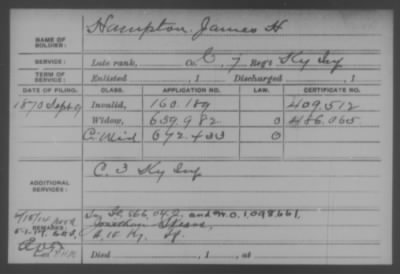 NAME OF SOLDIER: Hampton, James H
SERVICE: Late rank, Co. C, 7 Reg't Ky Inf
TERM OF SERVICE: Enlisted , 1 Discharged , 1
DATE OF FILING. CLASS. APPLICATION NO. LAW. CERTIFICATE NO.
1870 Sept 9 Invalid, 160.189 409.512
Widow, 659.982 0 486.065
C. Wid 672.433 0
ADDITIONAL SERVICES: C. 3 Ky Inf
REMARKS: and W.O. 1,098,661,
Jonathan
Died , 1 , at